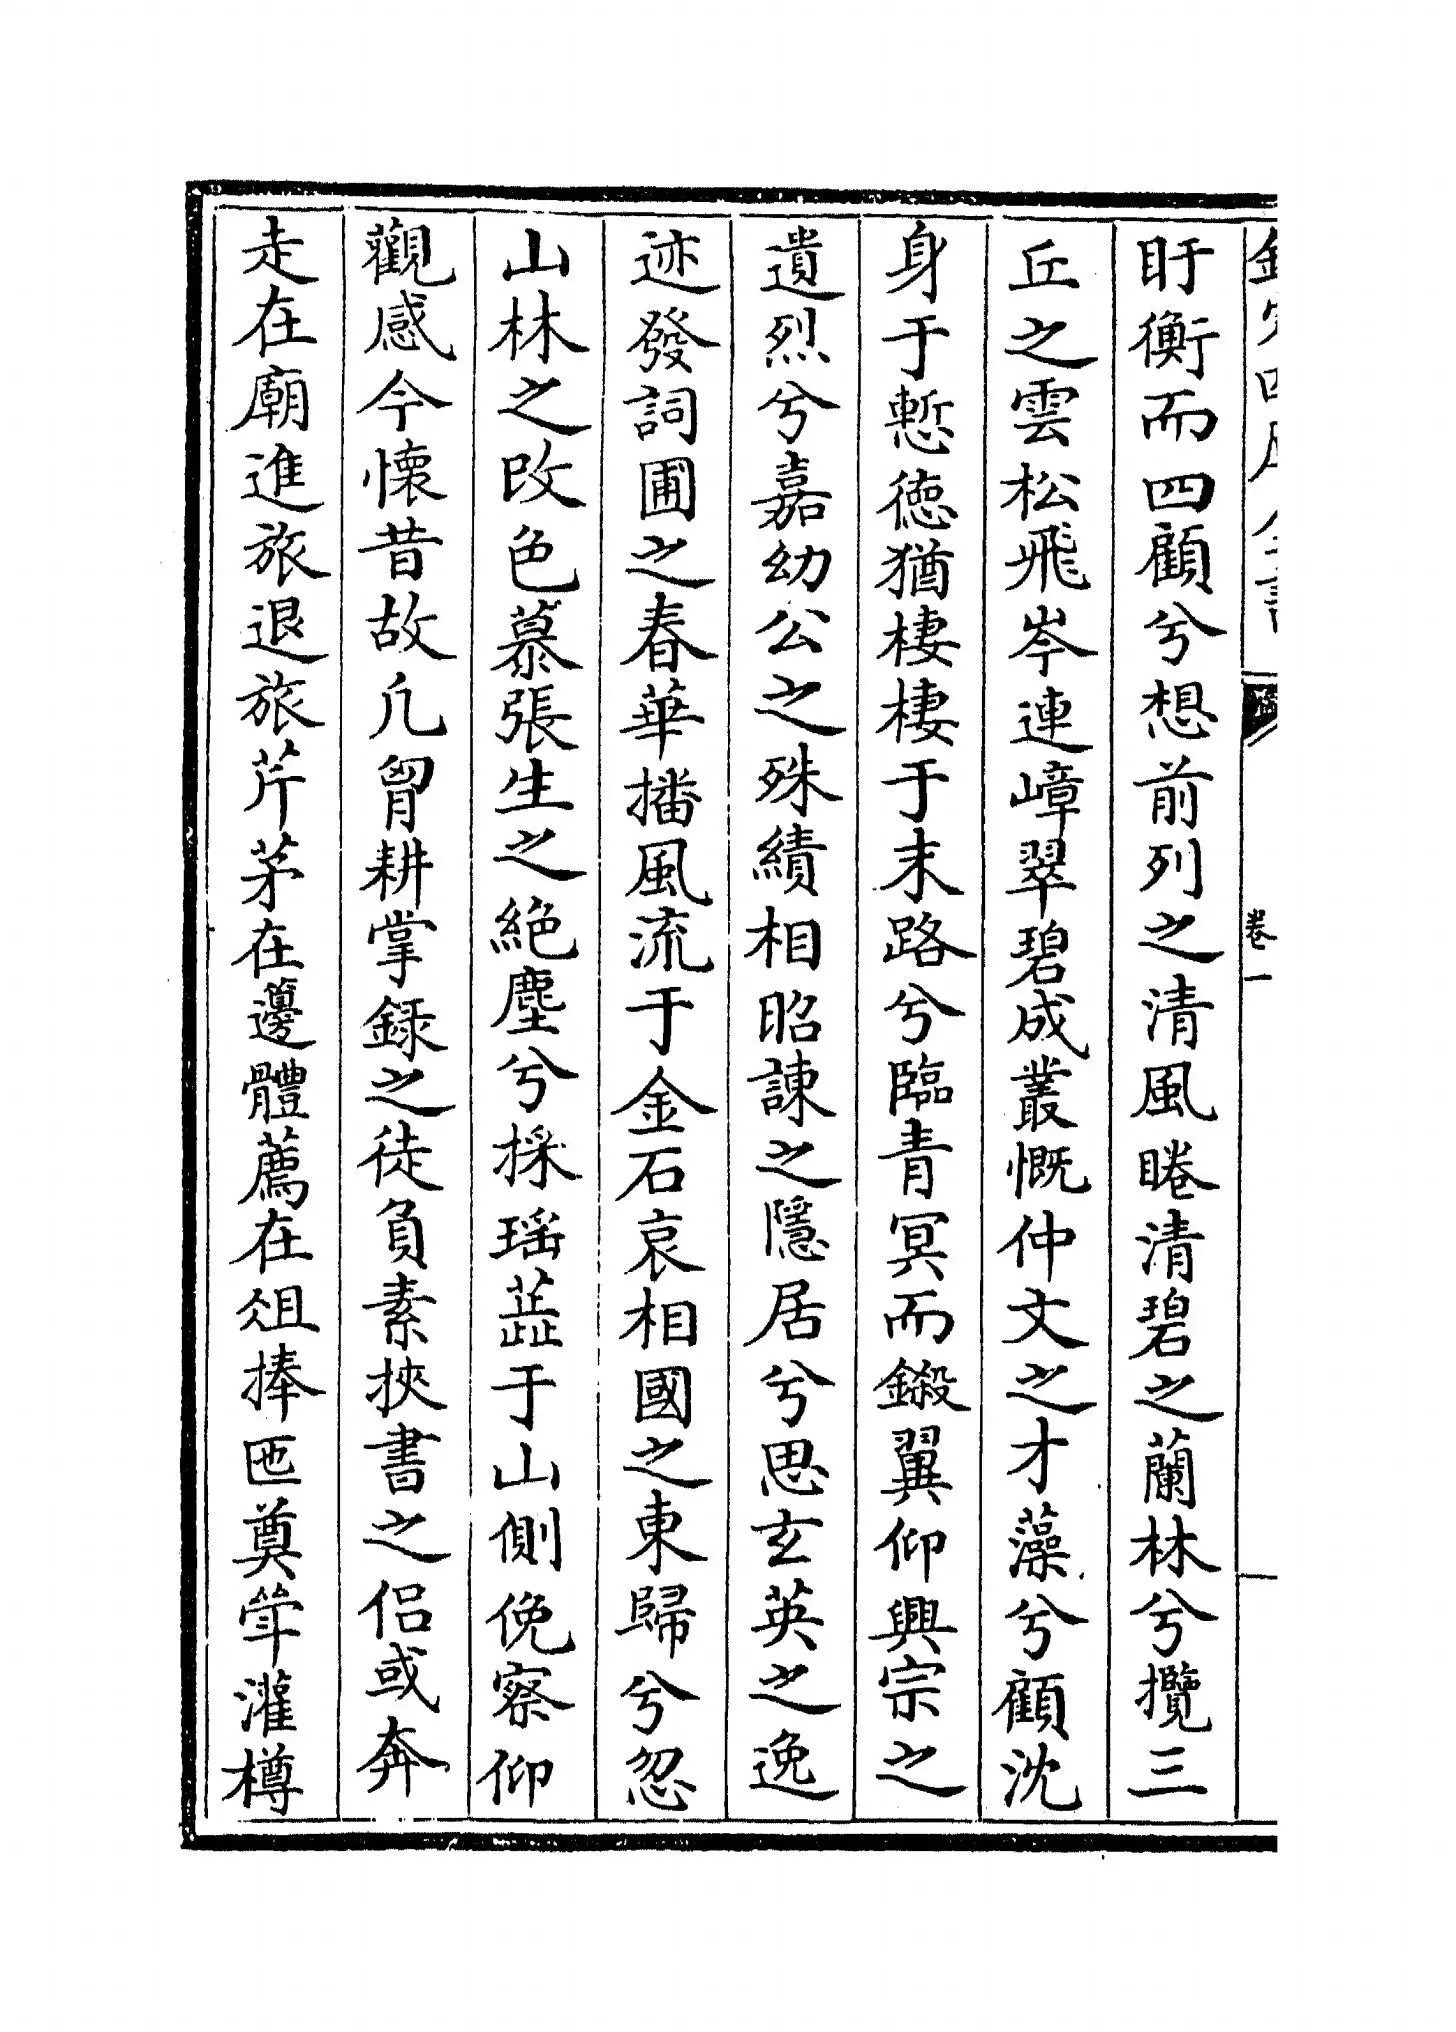 欽定四庫全書 卷一
盱衡而四顧兮想前列之清風睠清碧之蘭林兮攬三
丘之雲松飛岑連嶂翠碧成叢慨仲文之才藻兮顧沈
身于慙德猶棲棲于末路兮臨青冥而鎩翼仰興宗之
遺烈兮嘉幼公之殊績相昭諫之隱居兮思玄英之逸
迹發詞圃之春華播風流于金石哀相國之東歸兮忽
山林之改色慕張生之絶塵兮採瑶蕋于山側俛察仰
觀感今懷昔故凢胷耕掌録之徒負素挾書之侣或奔
走在廟進旅退旅芹茅在籩體薦在俎捧匜奠斝灌樽